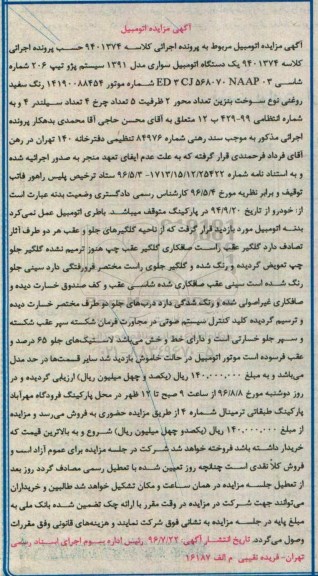 آگهی مزایده اتومبیل
آگهی مزایده اتومبیل مربوط به پرونده اجرائی کلاسه ۹۴۰۱۳۷۴ حسب پرونده اجرائی
کلاسه ۹۴۰۱۳۷۴ یک دستگاه اتومبیل سواری مدل ۱۳۹۱ سیستم پژو تیپ ۲۰۶ شماره
شاسی NAAP ۰۳ ED ۳ CJ ۵۶۸۰۷۰ شماره موتور ۱۴۱۹۰۰۸۸۴۵۴ رنگ سفید
روغنی نوع سوخت بنزین تعداد محور ۲ ظرفیت ۵ تعداد چرخ ۴ تعداد سیلندر ۴ و به
شماره انتظامی ۹۹-۴۲۹ ب ۱۲ متعلق به آقای محسن حاجی آقا محمدی بدهکار پرونده
اجرائی مذکور به موجب سند رهنی شماره ۸۴۹۷۶ تنظیمی دفترخانه ۱۴۰ تهران در رهن
آقای فرداد فرحمندی قرار گرفته که به علت عدم ایفای تعهد منجر به صدور اجرائیه شده
و به استناد نامه شماره ۱۷۱۳/۱۵/۱۲/۲۵۴۲۲- ۹۶/۵/۳ ستاد ترخیص پلیس راهور فاتب
توقیف و برابر نظریه مورخ ۹۶/۵/۴ کارشناس رسمی دادگستری وضعیت بدنه عبارت است
از: خودرو از تاریخ ۹۴/۹/۲۰ در پارکینگ متوقف میباشد. باطری اتومبیل عمل نمی‌کرد
بدنه اتومبیل مورد بازدید قرار گرفت که از ناحیه گلگیرهای جلو و عقب هر دو طرف آثار
تصادف دارد گلگیر عقب راست صافکاری گلگیر عقب چپ هنوز ترمیم نشده گلگیر جلو
چپ تعویض گردیده و رنگ شده و گلگیر جلوی راست مختصر فرورفتگی دارد سینی جلو
رنگ شده است سینی عقب صافکاری شده شاسی عقب و کف صندوق خسارت دیده و
صافکاری غیراصولی شده و رنگ شدگی دارد درب‌های جلو دو طرف مختصر خسارت دیده
و ترسیم گردیده کلید کنترل سیستم صوتی در مجاورت فرمان شکسته سپر عقب شکسته
و سپر جلو خسارتی است و دارای خط و خش می‌باشد لاستیک‌های جلو ۶۵ درصد و
عقب فرسوده است موتور اتومبیل در حالت خاموش بازدید شد سایر قسمت‌ها در حد مدل
می‌باشد و به مبلغ ۱۴۰،۰۰۰،۰۰۰ ریال (یکصد و چهل میلیون ریال) ارزیابی گردیده و در
روز دوشنبه مورخ ۹۶/۸/۸ از ساعت ۹ صبح تا ۱۲ ظهر در محل پارکینگ فرودگاه مهرآباد
پارکینگ طبقاتی ترمینال شماره ۴ از طریق مزایده حضوری به فروش می‌رسد و مزایده
از مبلغ ۱۴۰،۰۰۰،۰۰۰ ریال (یکصدو چهل میلیون ریال) شروع و به بالاترین قیمت که
خریدار داشته باشد فروخته خواهد شد شرکت در جلسه مزایده برای عموم آزاد است و
فروش کلاً نقدی است چنانچه روز تعیین شده با تعطیل رسمی مصادف گردد روز بعد
از تعطیل جلسه مزایده در همان ساعت و مکان تشکیل خواهد شد طالبین و خریداران
می‌توانند جهت شرکت در مزایده در وقت مقرر با ارائه چک تضمین شده بانک ملی به
مبلغ پایه در جلسه مزایده به نشانی فوق شرکت نمایند و هزینه‌های قانونی وفق مقررات
وصول می‌گردد. تاریخ انتشار آگهی: ۹۶/۷/۲۲ رئیس اداره سوم اجرای اسناد رسمی
تهران- فریده تقیبی م الف ۱۶۱۸۷